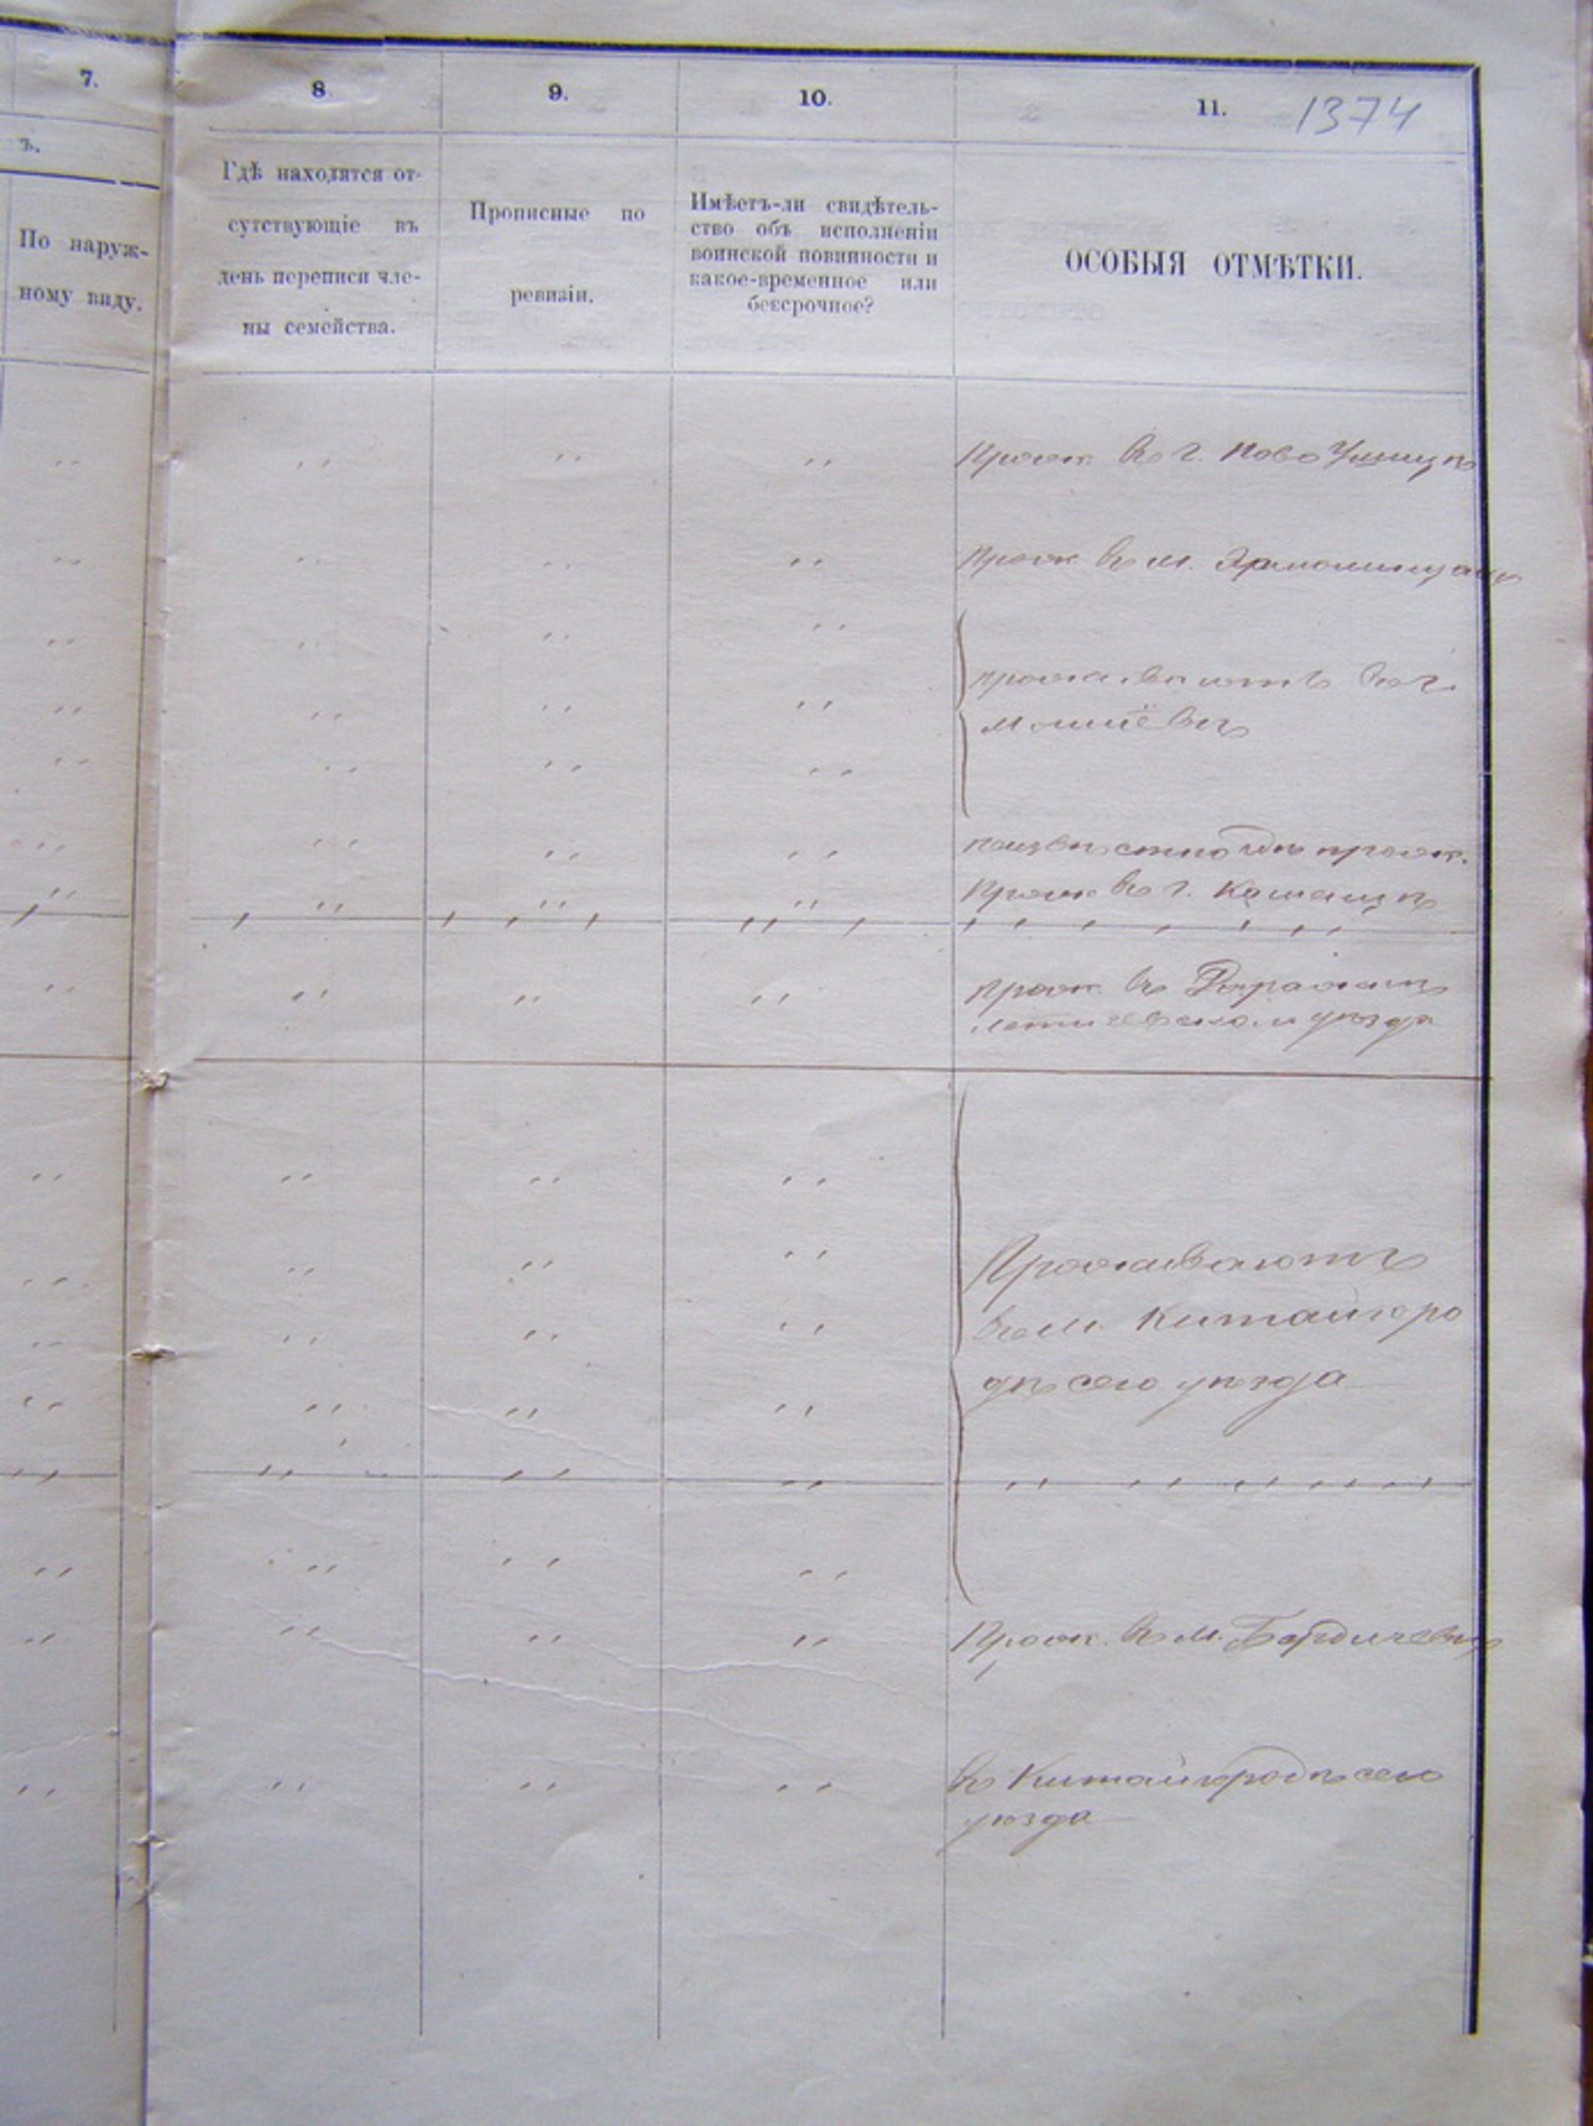 7.
8
9.
10.
11.
1374
ъ.
По наруж-
ному виду.
Гдѣ находятся от-
сутствующіе въ
день переписи чле-
ны семейства.
Прописные по
ревизіи.
Имѣетъ-ли свидѣтель-
ство объ исполненіи
воинской повинности и
какое-временное или
безсрочное?
ОСОБЫЯ ОТМѢТКИ.
Прож. въ г. Ново Ушицѣ
Прож. въ м. Ярмолинцахъ
проживаютъ въ г.
неизвѣстно гдѣ прож.
Прож въ г. Каменцѣ
прож. въ Деражнѣ
летичевском уѣзда
Проживаютъ
въ м. Китайгоро
дѣ сего уѣзда
Прож. въ м. Бердичевѣ
въ Китайгородѣ сего
уѣзда